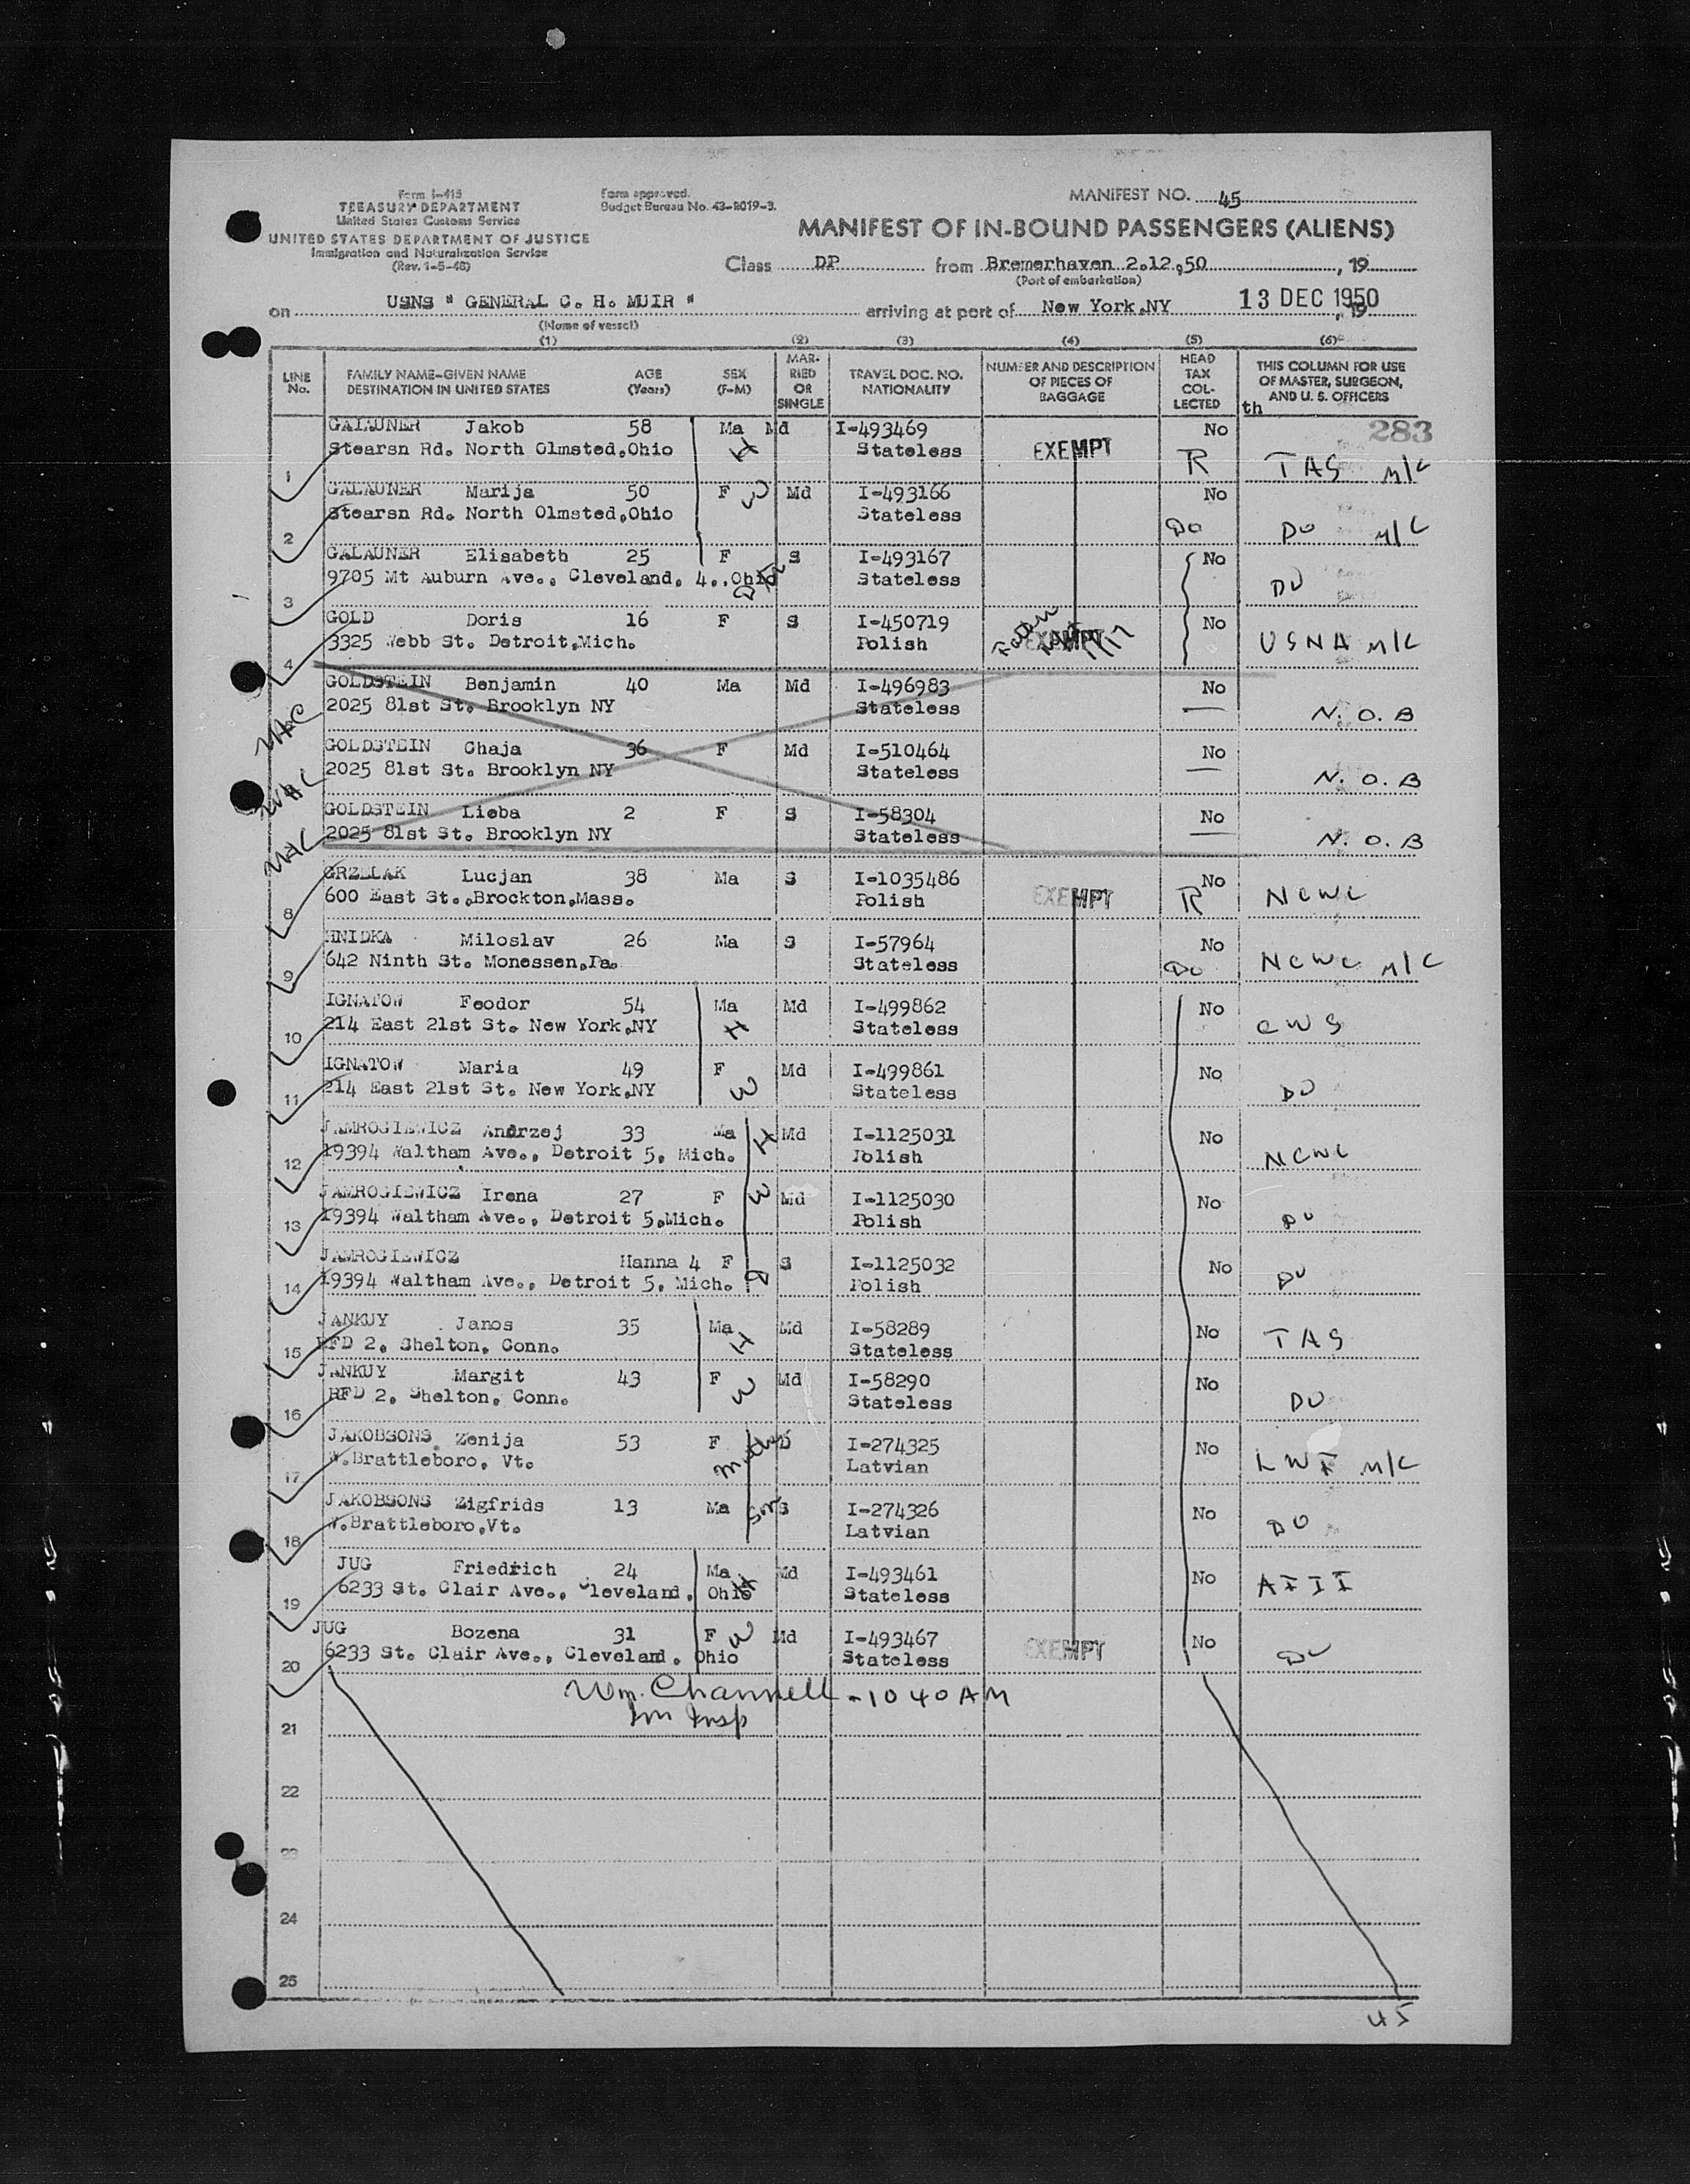 Form I-415
TREASURY DEPARTMENT
United States Customs Service
UNITED STATES DEPARTMENT OF JUSTICE
Immigration and Naturalization Service
(Rev. 1-5-48)
Form approved.
Budget Bureau No. 43-R019-3.
MANIFEST NO. 45
MANIFEST OF IN-BOUND PASSENGERS (ALIENS)
Class DP from Bremerhaven 2.12.50 , 19
(Port of embarkation)
on USNS " GENERAL C. H. MUIR " arriving at port of New York,NY 13 DEC 1950 , 19
(Name of vessel)
(1) (2) (3) (4) (5) (6)
LINE No. FAMILY NAME-GIVEN NAME DESTINATION IN UNITED STATES AGE (Years) SEX (F-M) MARRIED OR SINGLE TRAVEL DOC. NO. NATIONALITY NUMBER AND DESCRIPTION OF PIECES OF BAGGAGE HEAD TAX COLLECTED THIS COLUMN FOR USE OF MASTER, SURGEON, AND U. S. OFFICERS
th
283
GALAUNER Jakob 58 Ma Md I-493469 No
1 Stearsn Rd. North Olmsted,Ohio H Stateless EXEMPT R TAS M/C
GALAUNER Marija 50 F W Md I-493166 No
2 Stearsn Rd. North Olmsted,Ohio Stateless Do Do M/C
GALAUNER Elisabeth 25 F S I-493167 No
3 9705 Mt Auburn Ave., Cleveland, 4..Ohio Stateless DO
GOLD Doris 16 F S I-450719 No
4 3325 Webb St. Detroit,Mich. Polish EXEMPT USNA M/C
GOLDSTEIN Benjamin 40 Ma Md I-496983 No
2025 81st St. Brooklyn NY Stateless N. O. B
GOLDSTEIN Chaja 36 F Md I-510464 No
2025 81st St. Brooklyn NY Stateless N. O. B
GOLDSTEIN Lieba 2 F S I-58304 No
2025 81st St. Brooklyn NY Stateless N. O. B
GRZELAK Lucjan 38 Ma S I-1035486 No
8 600 East St.,Brockton,Mass. Polish EXEMPT R NCWC
HNIDKA Miloslav 26 Ma S I-57964 No
9 642 Ninth St. Monessen,Pa. Stateless Do NCWC M/C
IGNATOW Feodor 54 Ma Md I-499862 No
10 214 East 21st St. New York,NY H Stateless CWS
IGNATOW Maria 49 F Md I-499861 No
11 214 East 21st St. New York,NY W Stateless DO
JAMROGIEWICZ Andrzej 33 Ma H Md I-1125031 No
12 19394 Waltham Ave., Detroit 5, Mich. Polish NCWC
JAMROGIEWICZ Irena 27 F W Md I-1125030 No
13 19394 Waltham Ave., Detroit 5,Mich. Polish DO
JAMROGIEWICZ Hanna 4 F S I-1125032 No
14 19394 Waltham Ave., Detroit 5, Mich. D Polish DO
JANKUY Janos 35 Ma Md I-58289 No
15 RFD 2, Shelton, Conn. H Stateless TAS
JANKUY Margit 43 F Md I-58290 No
16 RFD 2, Shelton, Conn. W Stateless DO
JAKOBSONS Zenija 53 F D I-274325 No
17 W.Brattleboro, Vt. Mother Latvian LWF M/C
JAKOBSONS Zigfrids 13 Ma Son S I-274326 No
18 W.Brattleboro,Vt. Latvian DO
JUG Friedrich 24 Ma Md I-493461 No
19 6233 St. Clair Ave., Cleveland, Ohio H Stateless AFII
JUG Bozena 31 F W Md I-493467 No
20 6233 St. Clair Ave., Cleveland, Ohio Stateless EXEMPT DO
Wm. Channell - 10 40 AM
Im Insp
21
22
23
24
25
45